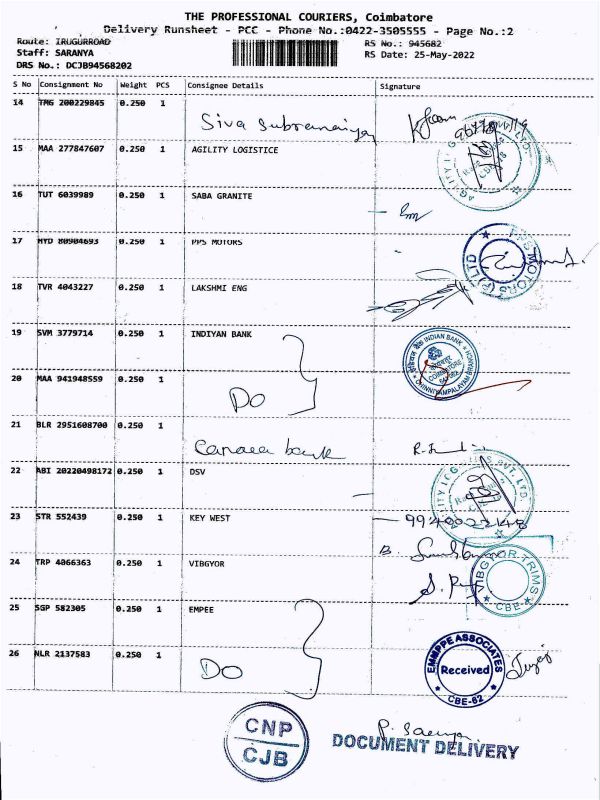 THE PROFESSIONAL COURIERS, Coimbatore
Delivery Runsheet - PCC - Phone No.:0422-3505555 - Page No.:2
Route: IRUGURROAD RS No.: 945682
Staff: SARANYA RS Date: 25-May-2022
DRS No.: DCJB94568202
S No Consignment No Weight PCS Consignee Details Signature
14 TMG 200229845 0.250 1 Siva Subramaniyan
15 MAA 277847607 0.250 1 AGILITY LOGISTICE
16 TUT 6039989 0.250 1 SABA GRANITE
17 HYD 80904693 0.250 1 PPS MOTORS
PPS MOTORS (P) LTD
18 TVR 4043227 0.250 1 LAKSHMI ENG
19 SVM 3779714 0.250 1 INDIYAN BANK
INDIAN BANK
COIMBATORE
20 MAA 941948559 0.250 1 DO
21 BLR 2951608700 0.250 1 Canara bank
22 ABI 20220498172 0.250 1 DSV
23 STR 552439 0.250 1 KEY WEST
24 TRP 4066363 0.250 1 VIBGYOR
VIBGYOR TRIMS
CBE
25 SGP 582305 0.250 1 EMPEE
26 NLR 2137583 0.250 1 DO
EMMPPE ASSOCIATES
Received
CBE-62
CNP
CJB
DOCUMENT DELIVERY